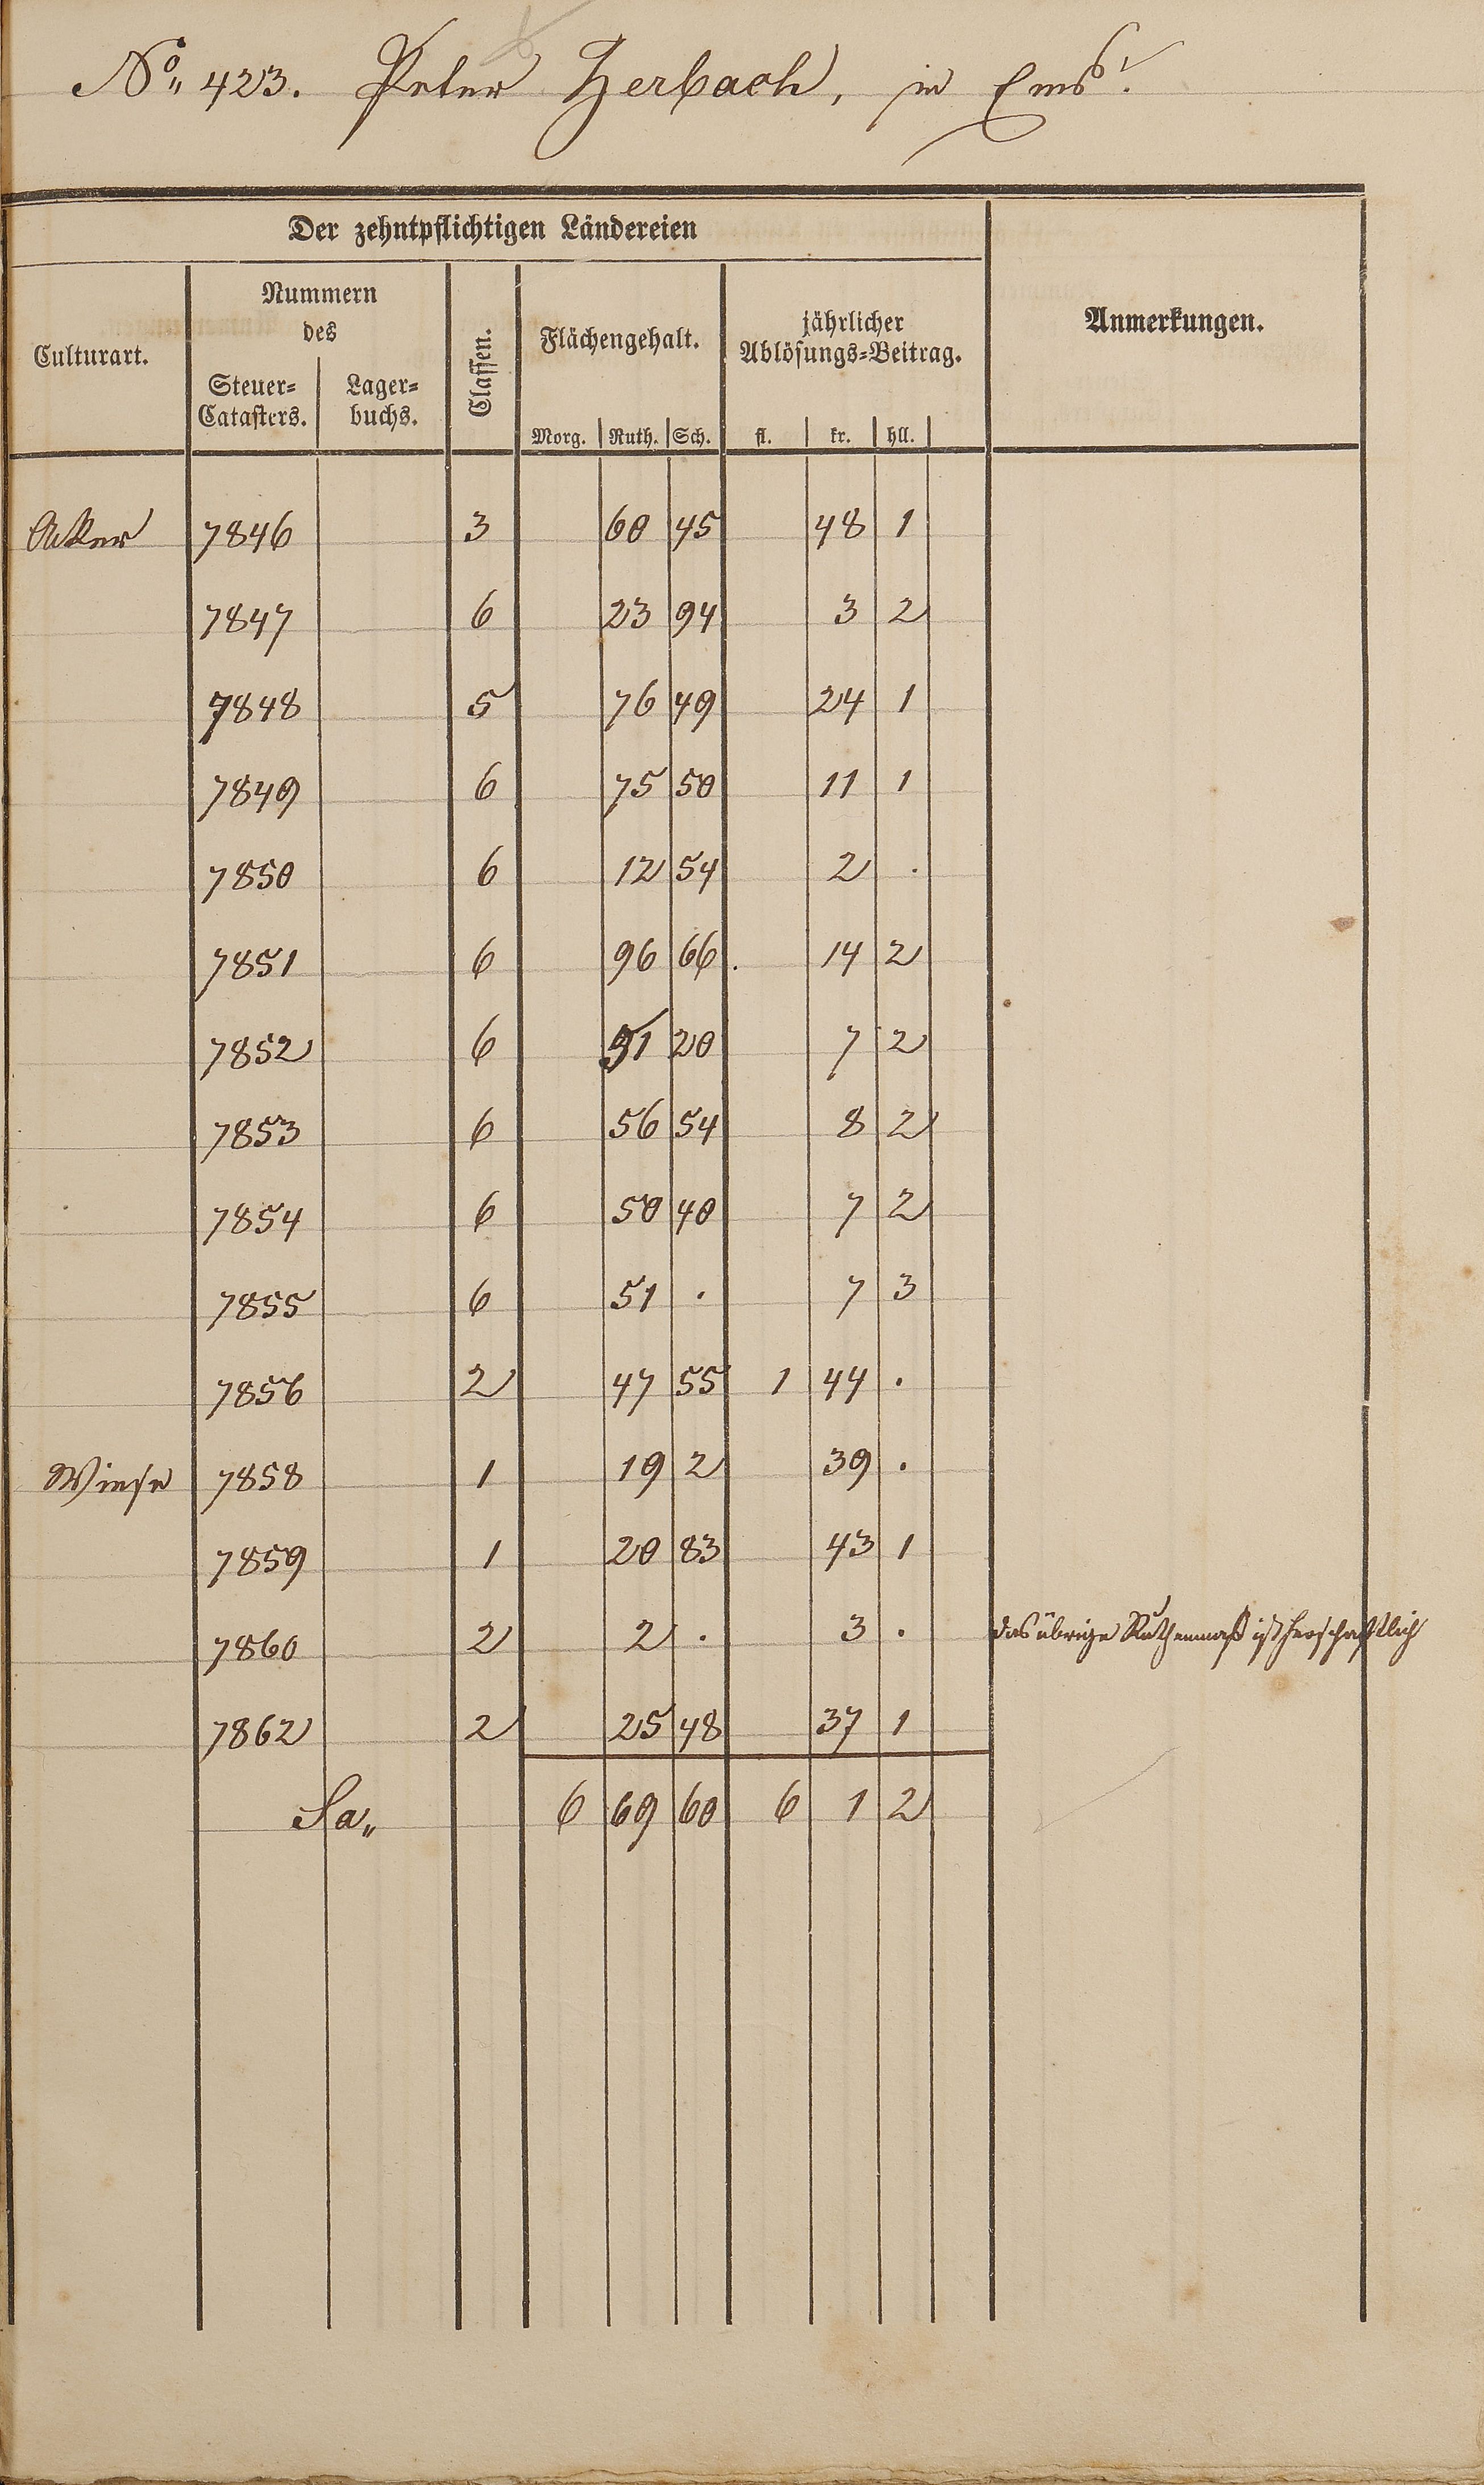 No. 423. Peter Herbach, in Ems.
Der zehntpflichtigen Ländereien
Culturart. Nummern des Steuer-Catasters. Lagerbuchs. Classen. Flächengehalt. jährlicher Ablösungs-Beitrag. Anmerkungen.
Morg. Ruth. Sch. fl. kr. hll.
Acker 7846 3 60 45 48 1
7847 6 23 94 3 2
7848 5 76 49 24 1
7849 6 75 50 11 1
7850 6 12 54 2 .
7851 6 96 66 . 14 2
7852 6 51 20 7 2
7853 6 56 54 8 2
7854 6 50 40 7 2
7855 6 51 . 7 3
7856 2 47 55 1 44 .
Wiese 7858 1 19 2 39 .
7859 1 20 83 43 1
7860 2 2 . 3 . das übrige Ruthenmaß ist herschaftlich
7862 2 25 48 37 1
Sa„ 6 69 60 6 1 2